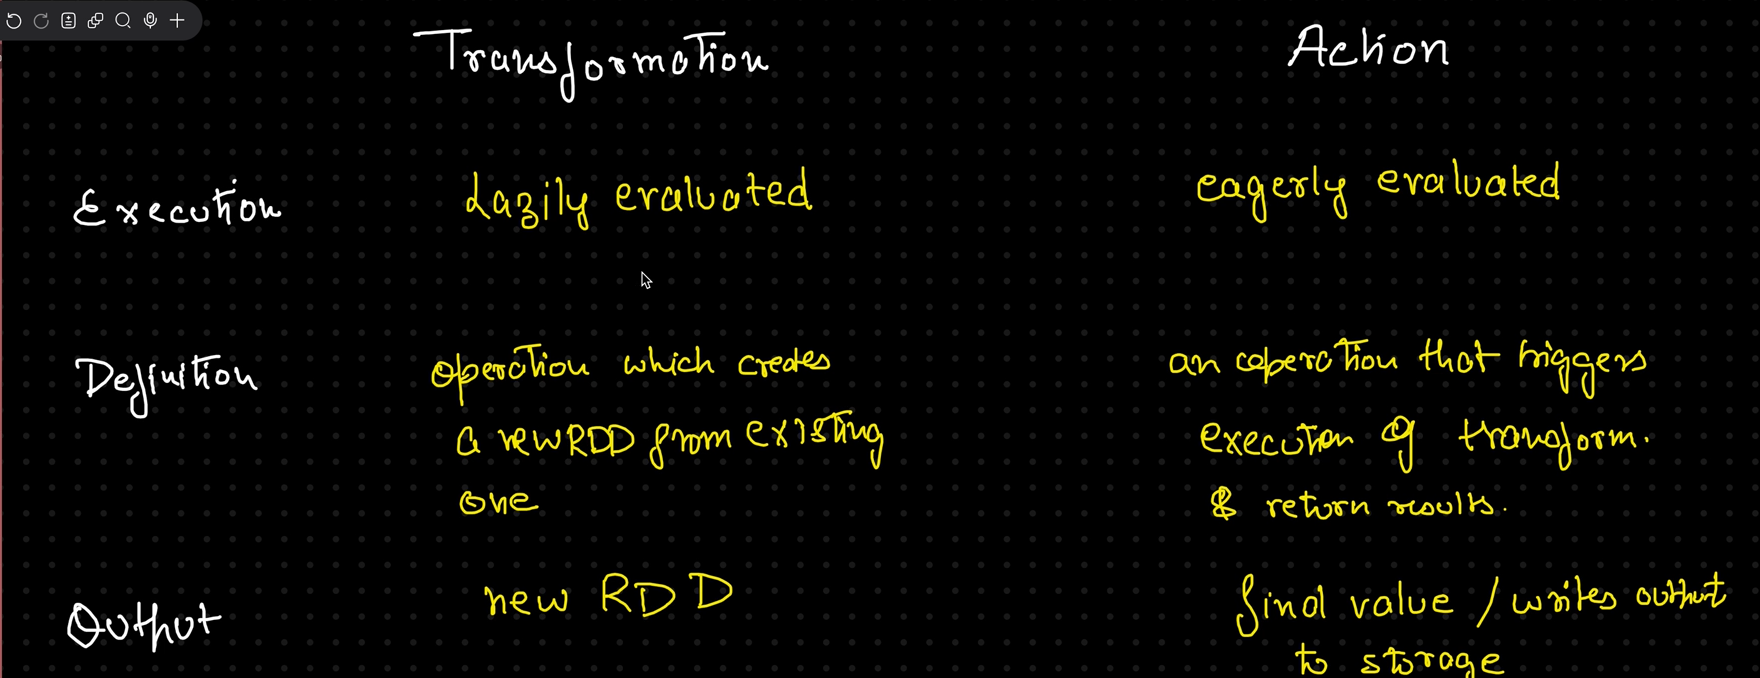 Transformation Action
Execution Lazily evaluated eagerly evaluated
Definition operation which creates an operation that triggers
a new RDD from existing execution of transform.
one & return results.
Output new RDD final value / writes output
to storage